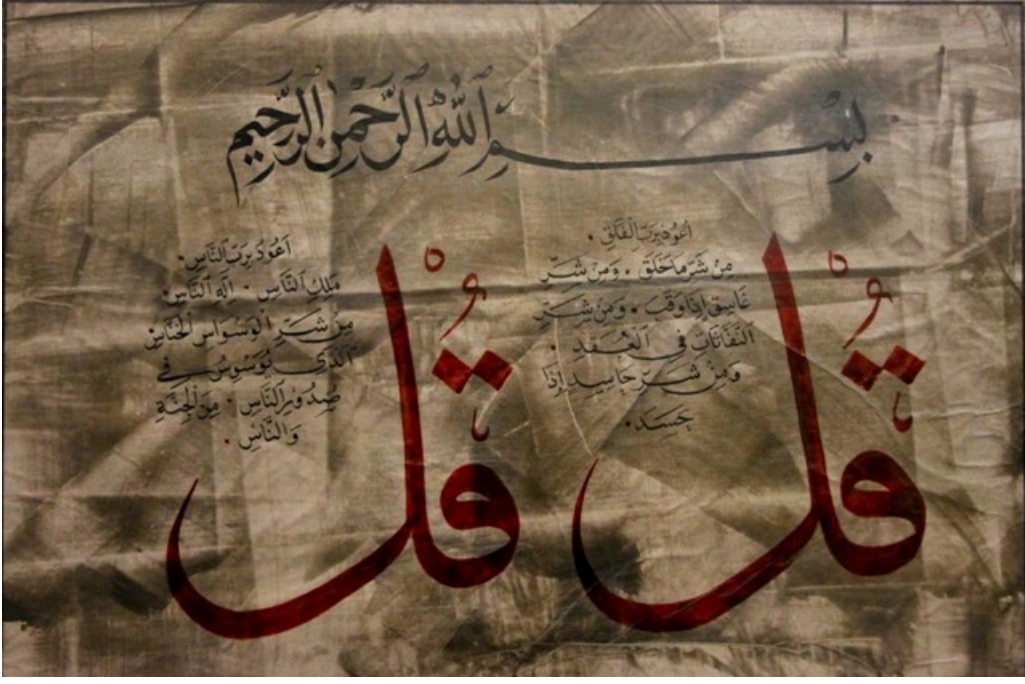 بِسْمِ اللّٰهِ الرَّحْمٰنِ الرَّحِيْمِ
قُلْ
اَعُوْذُ بِرَبِّ الْفَلَقِ ۰
مِنْ شَرِّ مَا خَلَقَ ۰ وَمِنْ شَرِّ
غَاسِقٍ اِذَا وَقَبَ ۰ وَمِنْ شَرِّ
النَّفَّاثَاتِ فِى الْعُقَدِ ۰
وَمِنْ شَرِّ حَاسِدٍ اِذَا
حَسَدَ ۰
قُلْ
اَعُوْذُ بِرَبِّ النَّاسِ ۰
مَلِكِ النَّاسِ ۰ اِلٰهِ النَّاسِ ۰
مِنْ شَرِّ الْوَسْوَاسِ الْخَنَّاسِ
الَّذِى يُوَسْوِسُ فِى
صُدُوْرِ النَّاسِ ۰ مِنَ الْجِنَّةِ
وَالنَّاسِ ۰